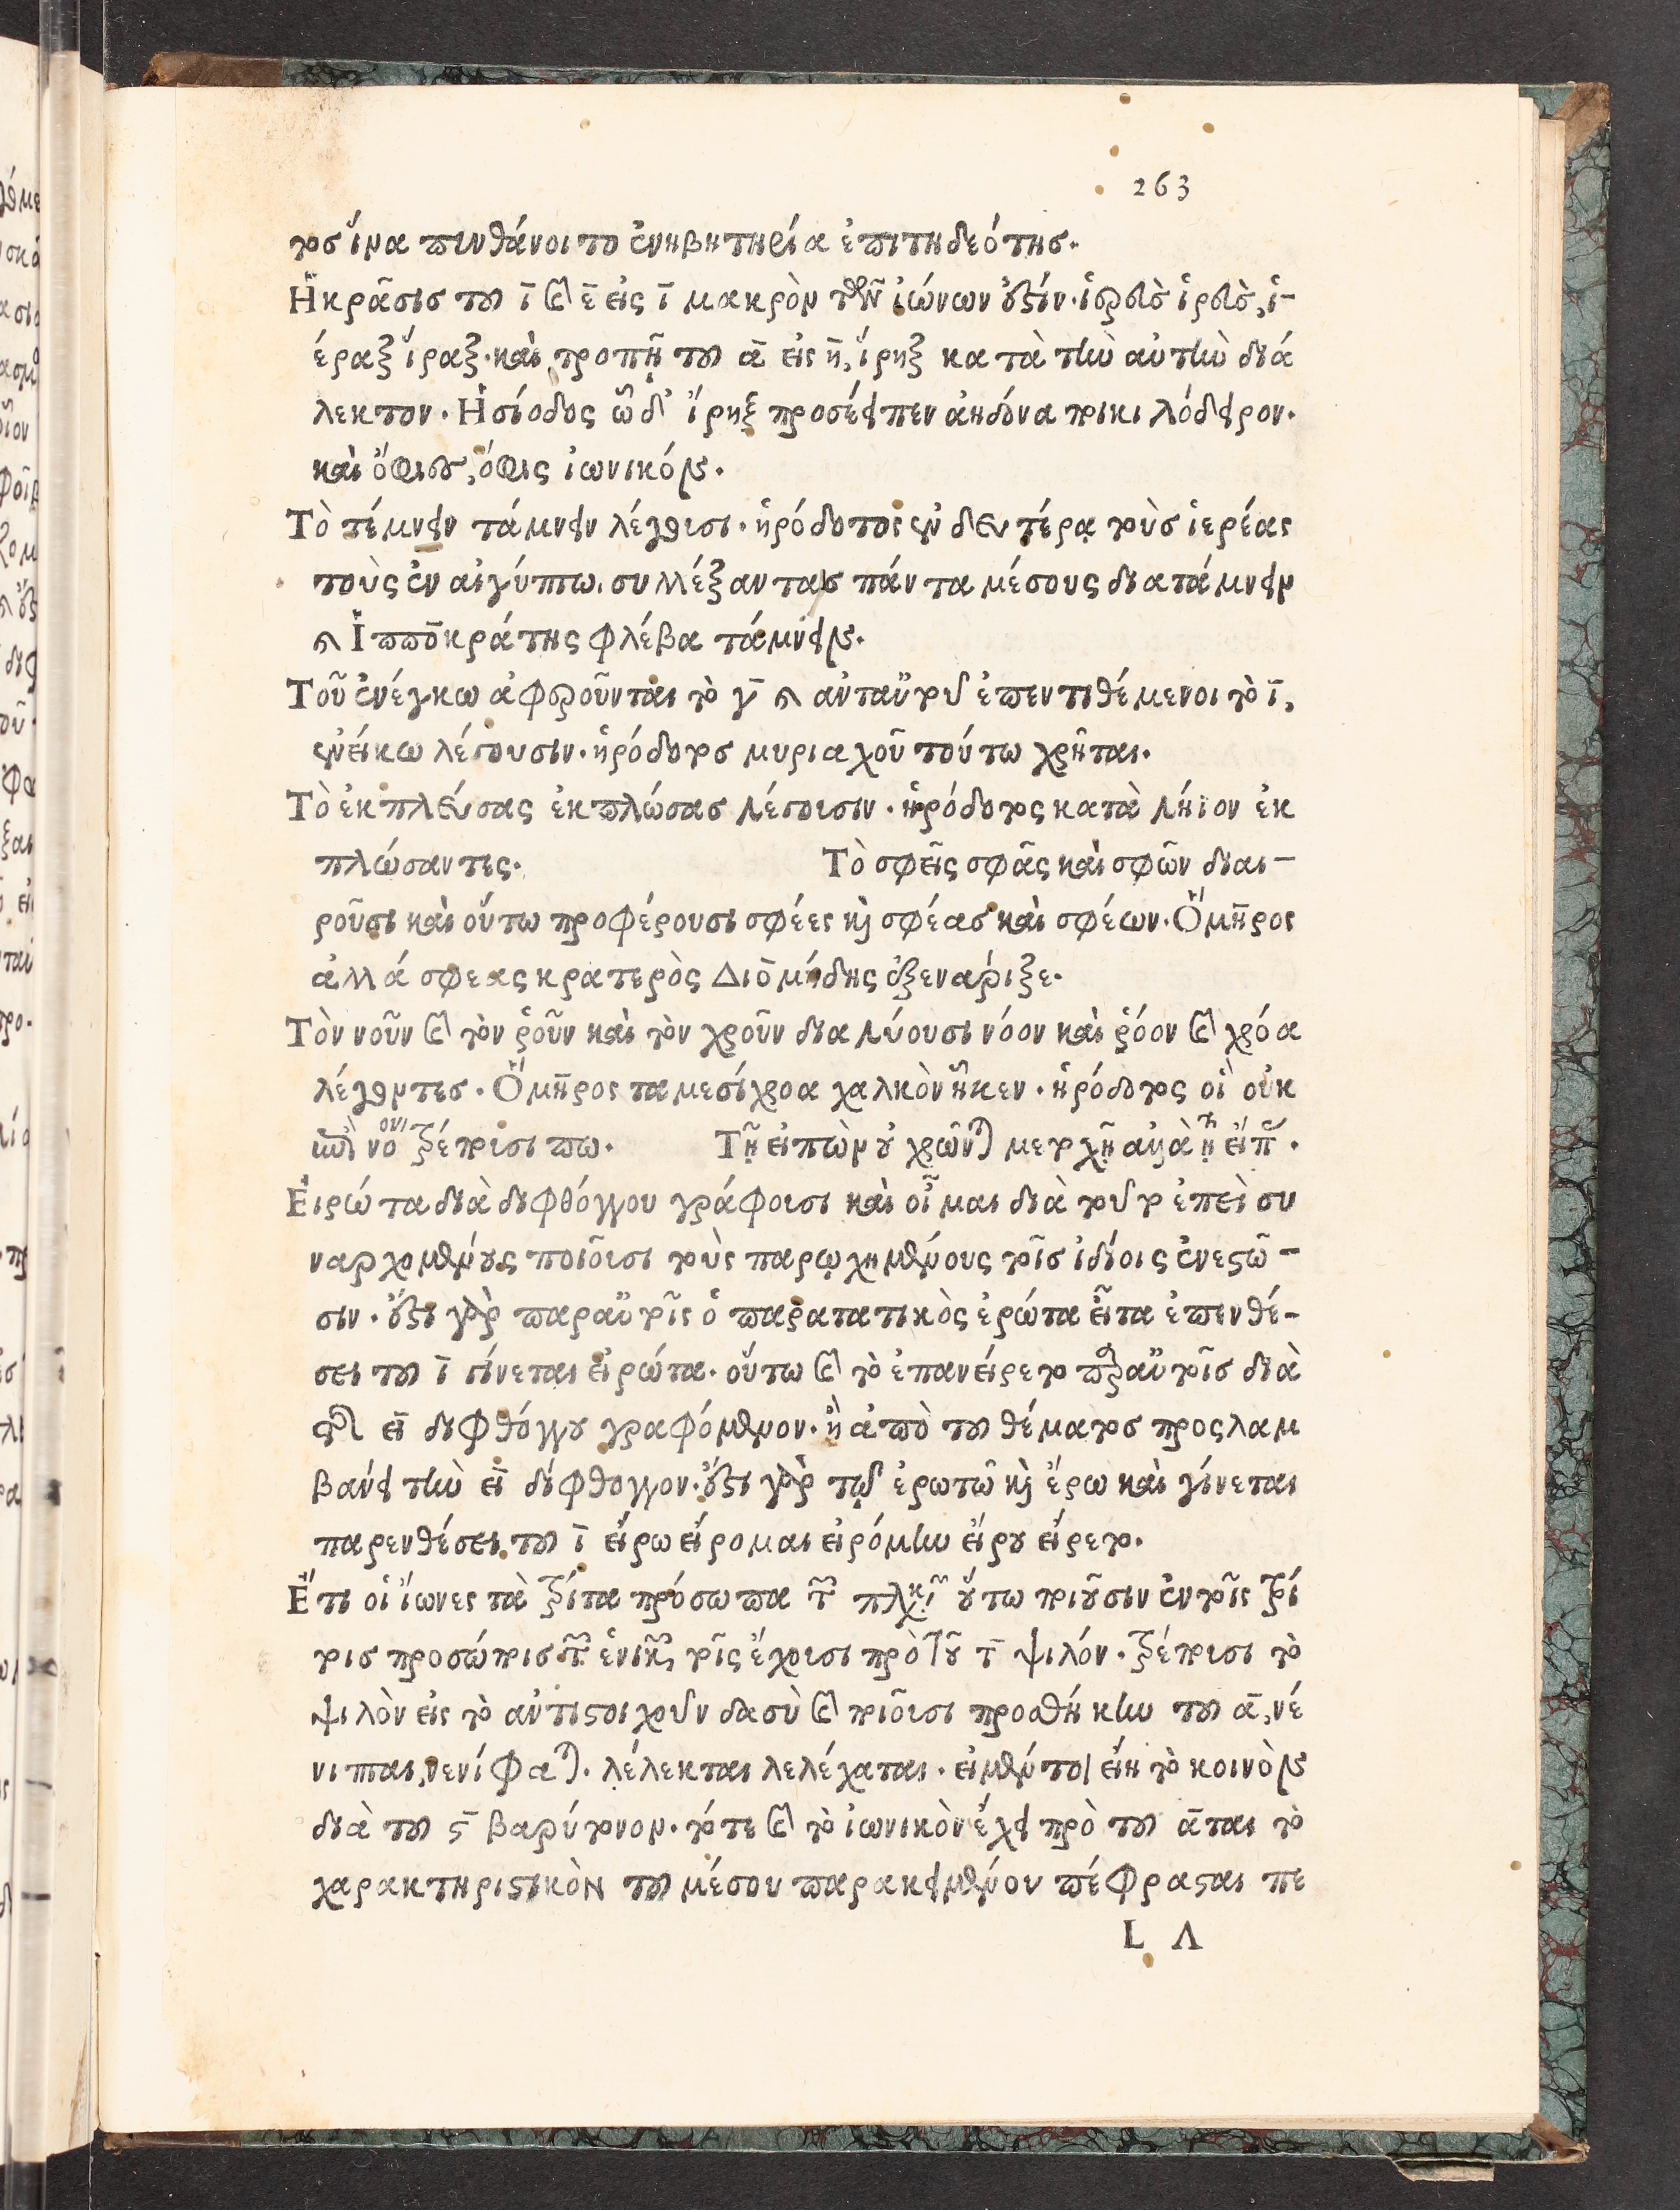 263
τος ἵνα πυνθάνοιτο ἐνηβητηρία ἐπιτηδεότης.
Ἡ κρᾶσις τοῦ ῑ καὶ ε̄ εἰς ῑ μακρὸν τῶν ἰώνων ἐστίν. ἱερὸς ἱρὸς, ἱ-
έραξ ἵραξ. καὶ τροπῇ τοῦ ᾱ εἰς η̄, ἵρηξ κατὰ τὴν αὐτὴν διά
λεκτον. Ἡσίοδος ὣ δ' ἵρηξ προσέειπεν ἀηδόνα ποικιλόδειρον.
καὶ ὄφιες, ὄφις ἰωνικόν.
Τὸ τέμνειν τάμνειν λέγουσι. ἡρόδοτος ἐν δευτέρᾳ τοὺς ἱερέας
τοὺς ἐν αἰγύπτωι συλλέξαντας πάντα μέσους διατάμνειν
καὶ Ἱπποκράτης φλέβα τάμνειν.
Τοῦ ἐνέγκω ἀφαιροῦνται τὸ γ̄ καὶ ἀνταῦτοῦ ἐπεντιθέμενοι τὸ ῑ,
ἐνείκω λέγουσιν. ἡρόδοτος μυριαχοῦ τούτω χρῆται.
Τὸ ἐκπλεύσας ἐκπλώσας λέγουσιν. ἡρόδοτος κατὰ λήϊον ἐκ
πλώσαντες. Τὸ σφεῖς σφᾶς καὶ σφῶν διαι-
ροῦσι καὶ οὕτω προφέρουσι σφέες καὶ σφέας καὶ σφέων. Ὅμηρος
ἀλλά σφεας κρατερὸς Διομήδης ἐξενάριξε.
Τὸν νοῦν καὶ τὸν ῥοῦν καὶ τὸν χροῦν διαλύουσι νόον καὶ ῥόον καὶ χρόα
λέγοντες. Ὅμηρος ταμεσίχροα χαλκὸν ἧκεν. ἡρόδοτος οἱ οὐκ
νο τρέποισί πω. Τῇ εἰπὼν οὐ χρῶνται
Εἰρώτα διὰ διφθόγγου γράφουσι καὶ οἶμαι διὰ τοῦτο ἐπεὶ συ
ναρχομένους ποιοῦσι τοὺς παρῳχημένους τοῖς ἰδίοις ἐνεστῶ-
σιν. ἔστι γὰρ παραὐτοῖς ὁ παρατατικὸς ἐρώτα εἶτα ἐπενθέ-
σει τοῦ ῑ γίνεται εἰρώτα. οὕτω καὶ τὸ ἐπανείρετο παραὐτοῖς διὰ
τῆς ει διφθόγγου γραφόμενον. ἢ ἀπὸ τοῦ θέματος προςλαμ
βάνει τὴν ει δίφθογγον. ἔστι γὰρ τῷ ἐρωτῶ καὶ ἔρω καὶ γίνεται
παρενθέσει τοῦ ῑ εἴρω εἴρομαι εἰρόμην εἴρου εἴρετο.
Ἔτι οἱ ἴωνες τὰ τρίτα πρόσωπα οὕτω ποιοῦσιν ἐν τοῖς τρί
τοις προσώποις τοῖς ἔχουσι πρὸ τοῦ τ̄ ψιλόν. τρέπουσι τὸ
ψιλὸν εἰς τὸ ἀντιστοιχοῦν δασὺ καὶ ποιοῦσι προσθήκην τοῦ ᾱ, νέ
νιπται, νενίφαται. λέλεκται λελέχαται. εἰ μέντοι εἴη τὸ κοινὸν
διὰ τοῦ ς̄ βαρύτονον. τότε καὶ τὸ ἰωνικὸν ἔχει πρὸ τοῦ ᾱται τὸ
χαρακτηριστικὸν τοῦ μέσου παρακειμένου πέφρασται πε
L Λ